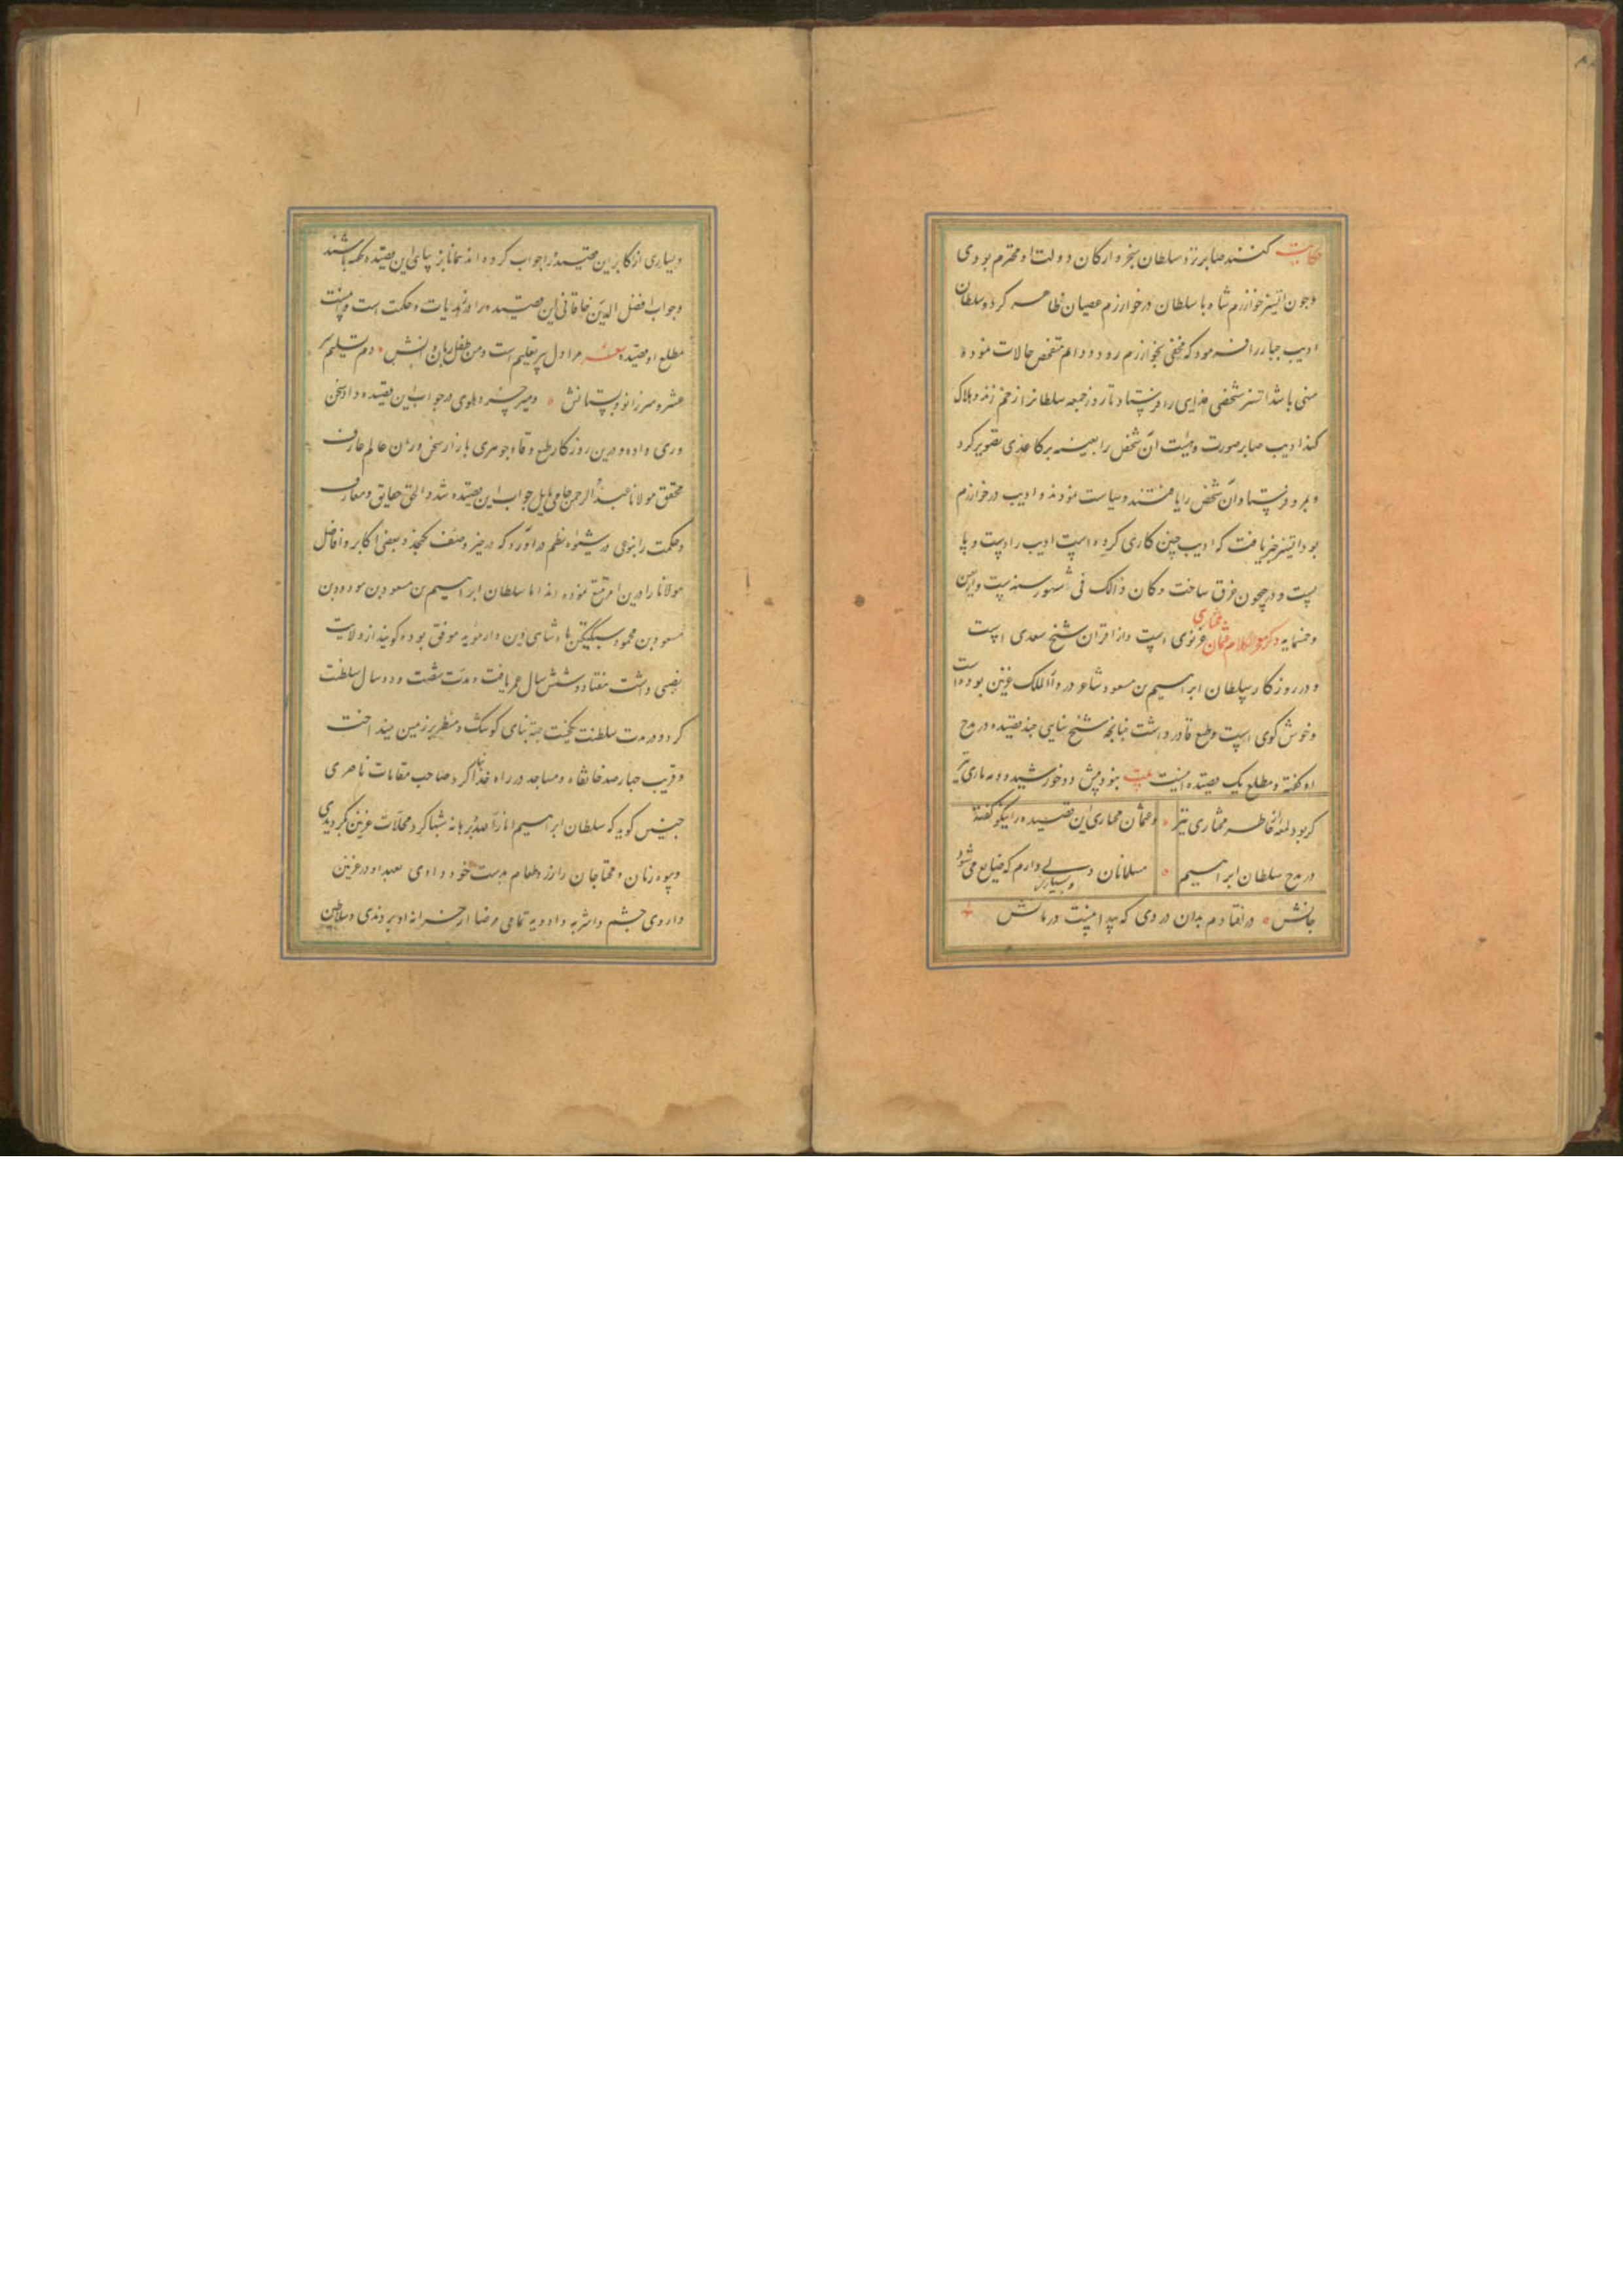 حکایت گویند صابر نزد سلطان سنجر و ارکان دولت او محترم بودی
و جون اتسز خوارزم شاه با سلطان در خوارزم عصیان ظاهر کرد و سلطان
ادیب صابر را فرمود که مخفی بخوارزم رود و دایم متفحص حالات بوده
منهی باشد اتسز شخصی فدایی را فرستاد تا روز جمعه سلطانرا زخم زند و هلاک
کند ادیب صابر صورت و هیئت آن شخص را بعینه بر کاغذی تصویر کرد
و بمرو فرستاد و آن شخص را یافتند و سیاست نمودند و ادیب در خوارزم
بود اتسز خبر یافت که ادیب چنین کاری کرده است ادیب را دست و پا
بست و در جیحون غرق ساخت و کان ذالک فی شهور سنه ست و اربعین
و خمسمایه ذکر عثمان مختاری غزنوی است و از اقران شیخ سعدی است
و در روزکار سلطان ابراهیم بن مسعود شاعر در دار الملک غزنین بوده است
و خوش کوی است و طبع قادر داشت جنانجه شیخ سنایی جند قصیده در مدح
او کفته و مطلع یک قصیده اینست بیت نبود پیش دو خورشید و دو مه تاری تیر
کر بود لمعه از خاطر مختاری تیر و عثمان مختاری این قصیده را نیکو کفته
در مدح سلطان ابراهیم مسلمانان دلی دارم که ضایع می شود
جانش در افتادم بدان دردی که پیدا نیست درمانش
و بسیاری از اکابر این قصیده را جواب کرده اند
و جواب افضل الدین خاقانی این قصیده را در زهدیات و حکمت است و اینست
مطلع او قصیده مرا دل پیر تعلیم است و من طفل زبان دانش دم تسلیم سر
عشر و سر زانو دبستانش و میر خسرو دهلوی در جواب این قصیده داد سخن
وری داده و درین روزکار طبع وقاد جوهری بازار سخن وران عالم عارف
محقق مولانا عبد الرحمن جامی مایل جواب این قصیده شد و الحق حقایق و معارف
و حکمت را بنوعی در شیوه نظم در آورد که در حیز وصف نکنجد و بعضی اکابر و افاضل
مولانا را درین امر تتبع نموده اند اما سلطان ابراهیم بن مسعود بن مودود بن
مسعود بن محمود سبکتکین پادشاهی دین دار موید موفق بوده کویند از ولایت
نصیبی داشت هفتاد و شش سال عمر یافت و مدت شصت و دو سال سلطنت
کرد و در مدت سلطنت یکخشت جهته بنای کوشک و منظر بر زمین نینداخت
و قریب جهار صد خانقاه و مساجد در راه خدا بنا کرد صاحب مقامات ناصری
جنین کوید که سلطان ابراهیم شبها کرد محلات غزنین کردیدی
و بیوه زنان و محتاجان را زر و طعام بدست خود دادی بعهد او در غزنین
داروی جشم و اشربه و ادویه تمامی مرضا از خزانه او بردندی و سلاطین